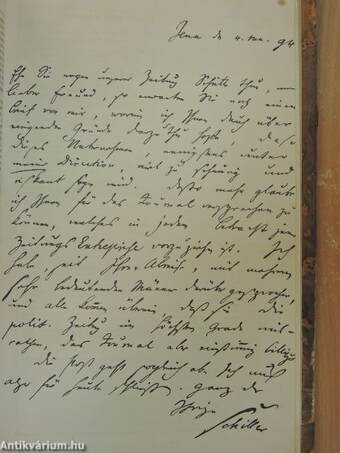 Jena den 4. 94
Ehe Sie wegen unserer Zeitung Schritte thun, mein
lieber Freund, so erwarten Sie noch einen
Brief von mir, worin ich Ihnen durch über
wiegende Gründe darzuthun hoffe, dass
dieses Unternehmen, wenigstens unter
meiner Direction, nicht zu
riskant seyn wird. Desto mehr glaube
ich Ihnen für das Journal versprechen zu
können, welches in jedem Betracht dem
Zeitungs vorzuziehen ist. Ich
habe, seit Ihrer Abreise, mit mehrern
sehr bedeutenden Männern davon gesprochen,
und alle kommen überein, daß sie die
polit. Zeitung im höchsten Grade mis-
rathen, das Journal aber einstimmig billigen.
Die Post geht sogleich ab. Ich muß
also für heute schließen. Ganz der
Ihrige
Schiller
Antikvárium.hu